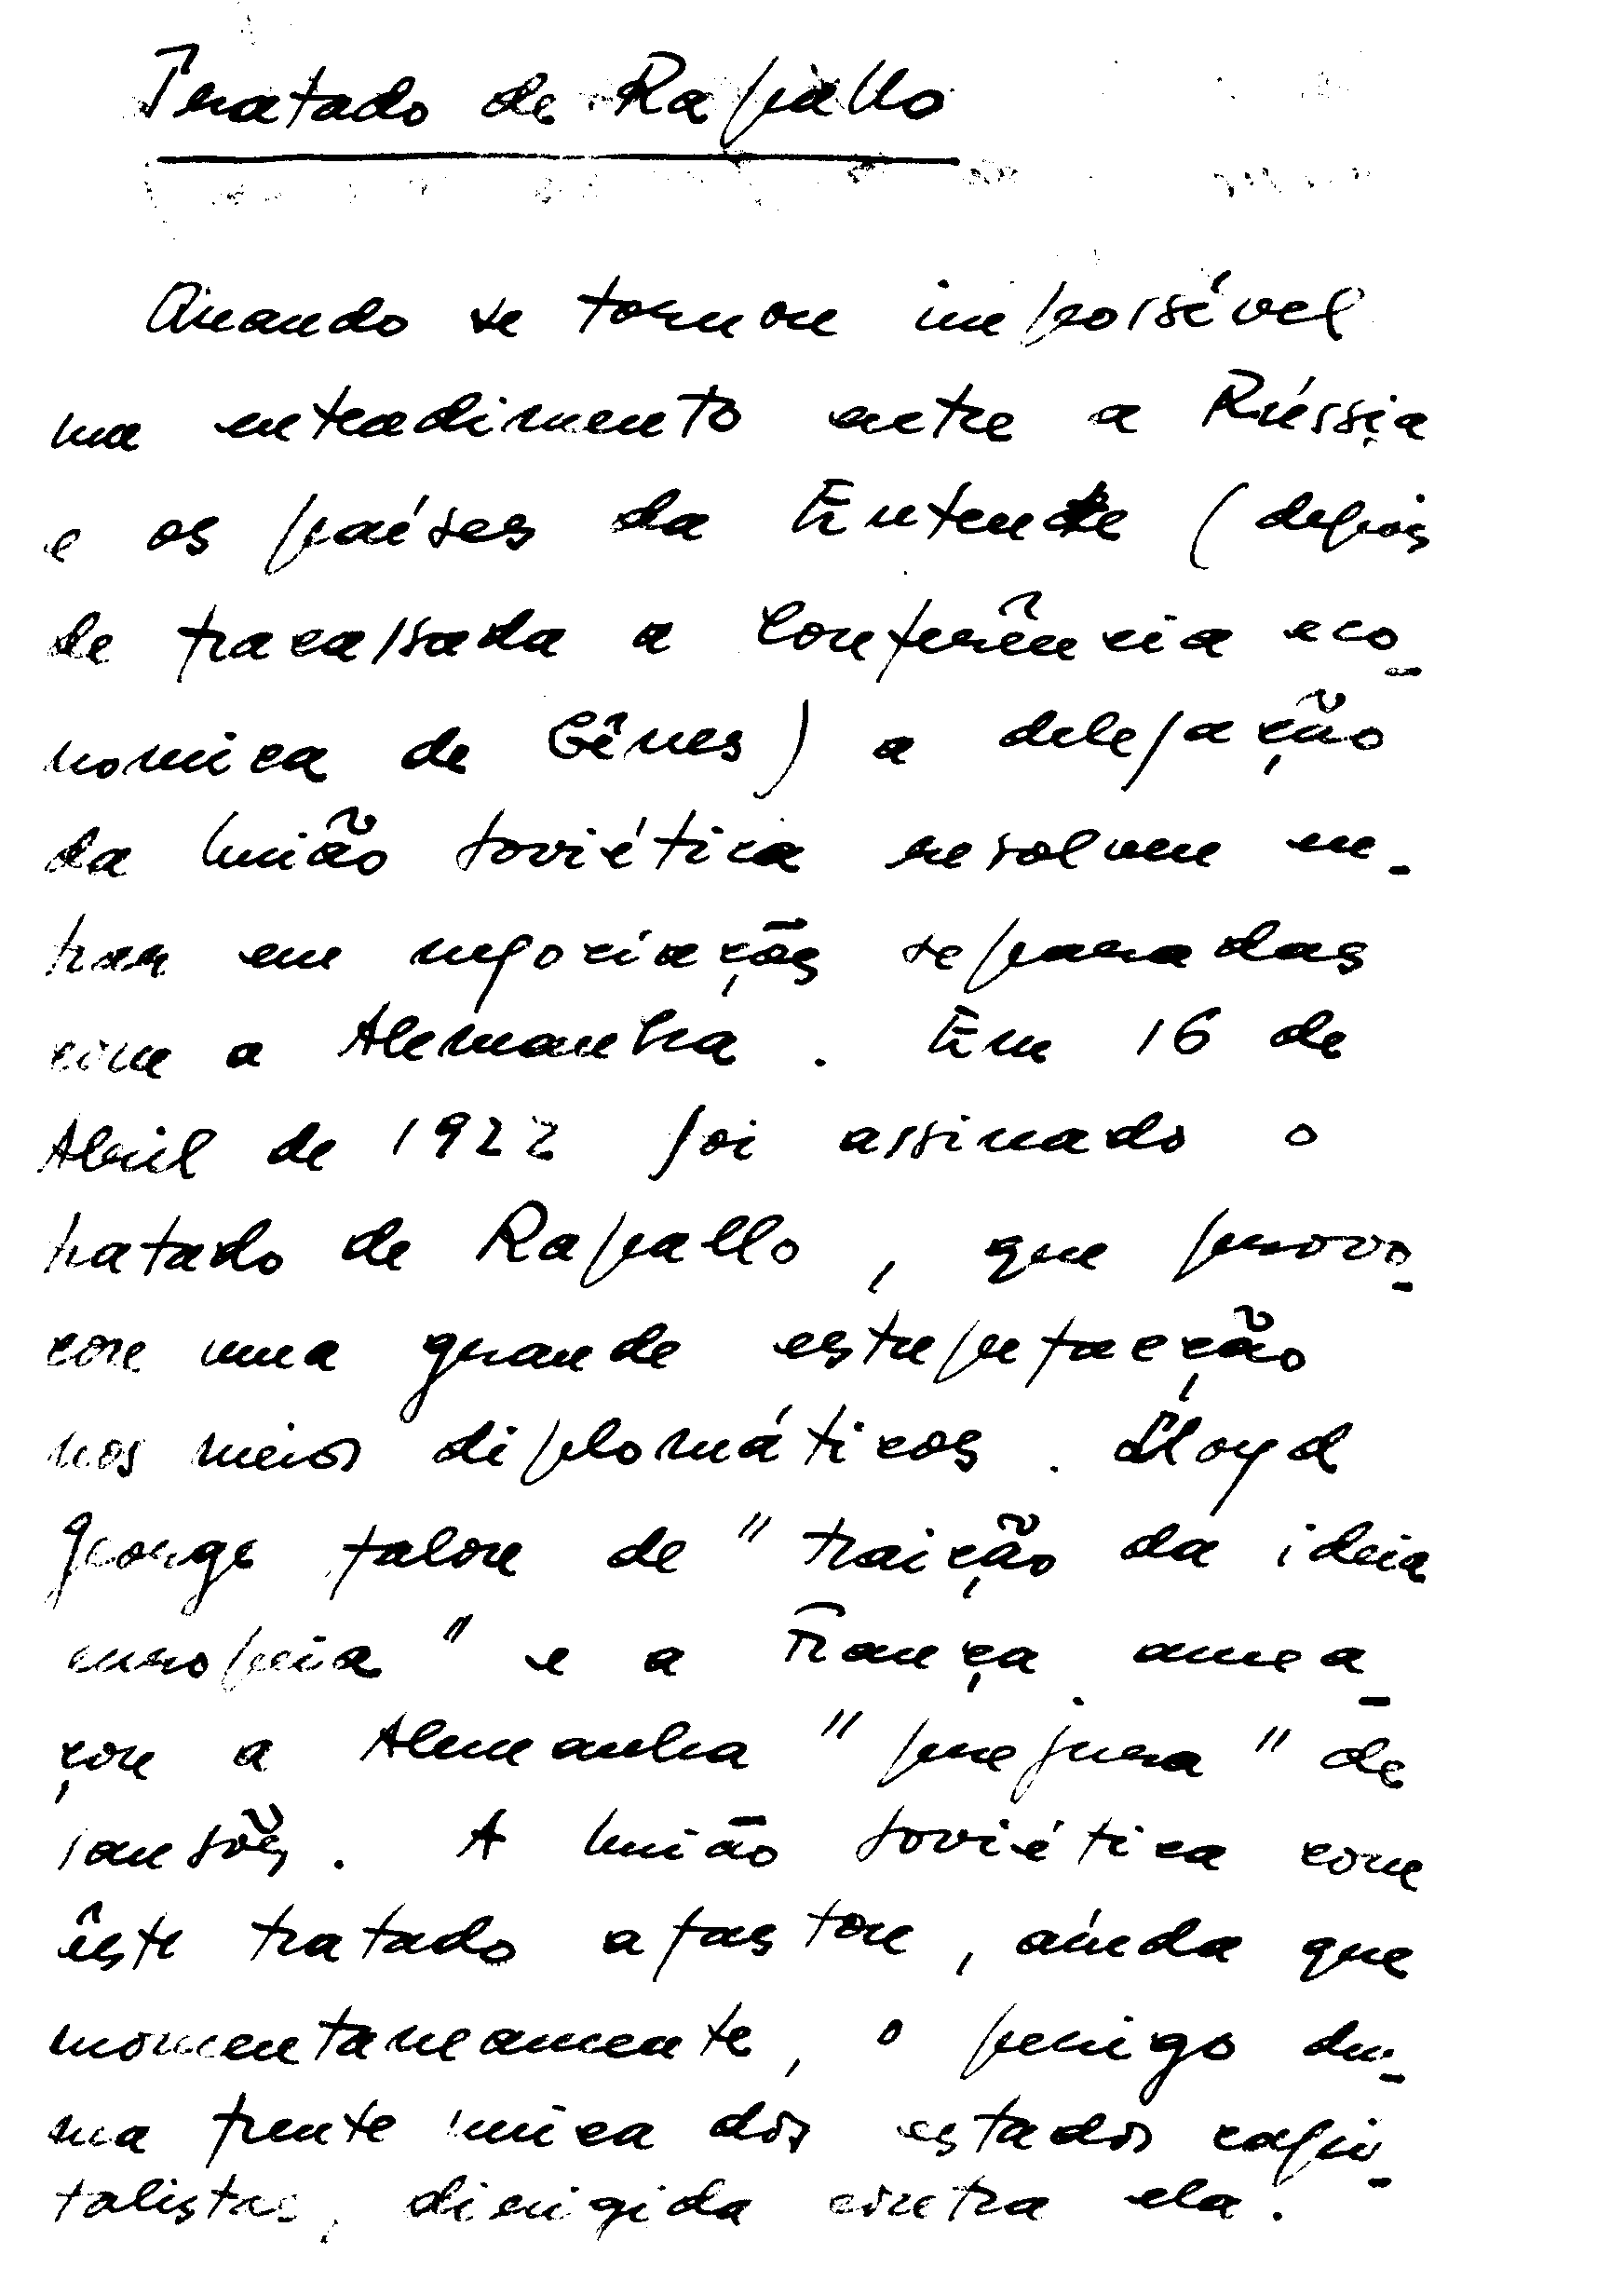 Tratado de Rapallo
Quando se tornou impossível
um entendimento entre a Rússia
e os países da Entente (depois
de fracassada a Conferência eco-
nomica de Gênes) a delegação
da União Soviética resolveu en-
trar em negociações separadas
com a Alemanha. Em 16 de
Abril de 1922 foi assinado o
tratado de Rapallo, que provo-
cou uma grande estupefacção
nos meios diplomáticos. Lloyd
George falou de "traição da ideia
europeia" e a França amea-
çou a Alemanha "perjura" de
sansões. A União Soviética com
êste tratado afastou, aínda que
momentaneamente, o perigo du-
ma frente unica dos estados capi-
talistas, dirigida contra ela.